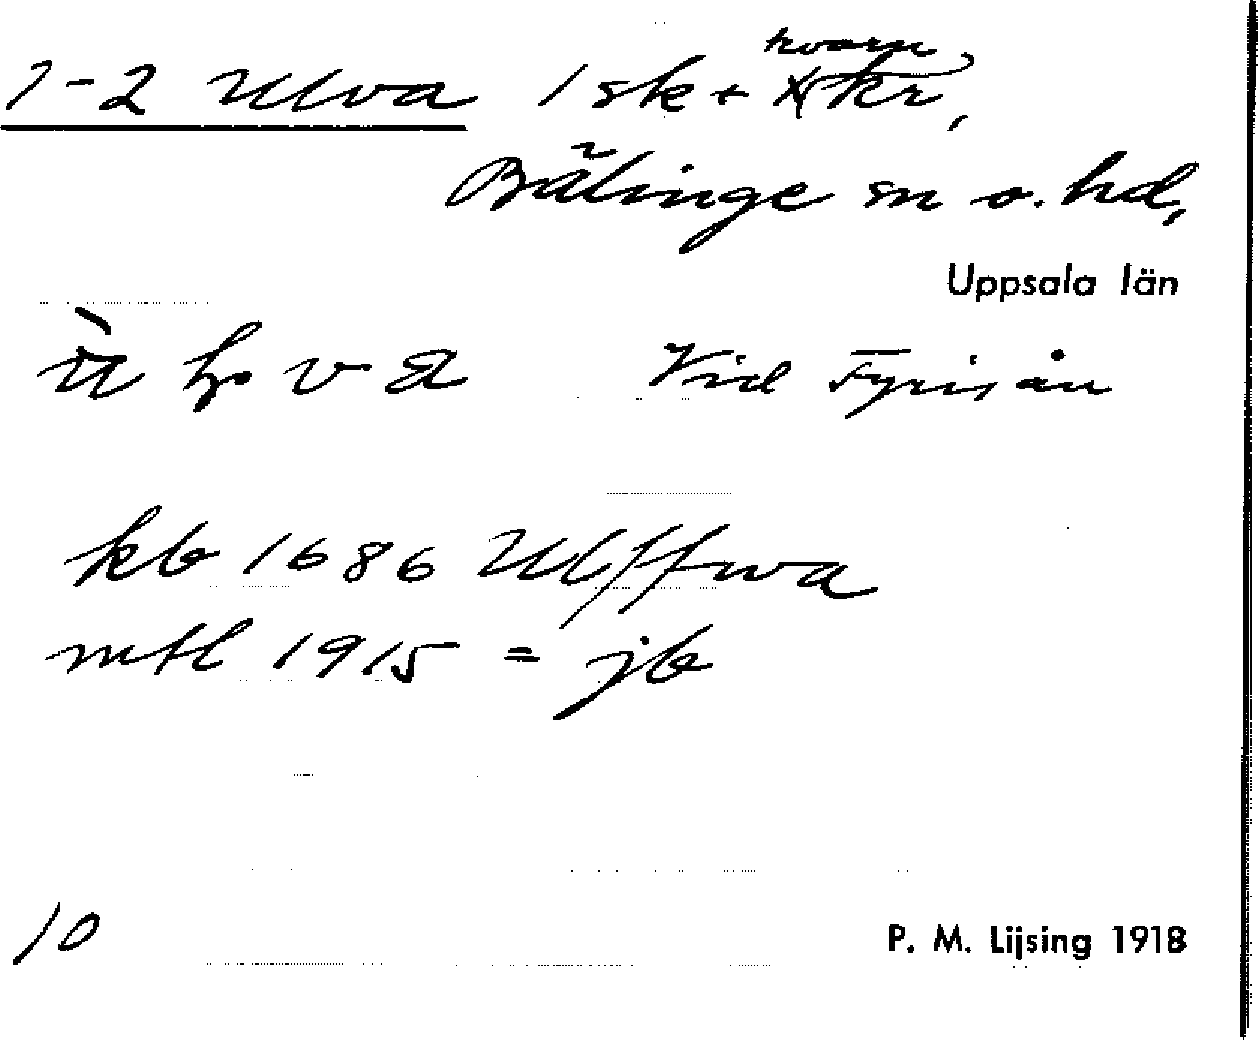 1-2 Ulva 1 sk + kvarn kr,
Bälinge sn o. hd,
Uppsala län
Vid Fyrisån
kb 1686 Ulffwa
mtl 1915 = jb
10
P. M. Lijsing 1918